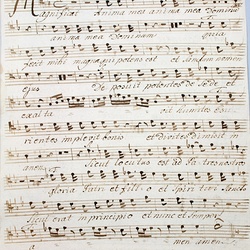 Magnificat anima mea anima mea Dominum
anima mea Dominum quia
fecit mihi magna qui potens est et sanctum nomen
ejus Deposuit potentes de Sede et
exalta it humiles esu
rientes implevit bonis et Divites Dimisit in
anes Sicut locutus est ad Patres nostros
gloria Patri et filio et Spiritui Sancto
Sicut erat in principio et nunc et Semper
a men amen